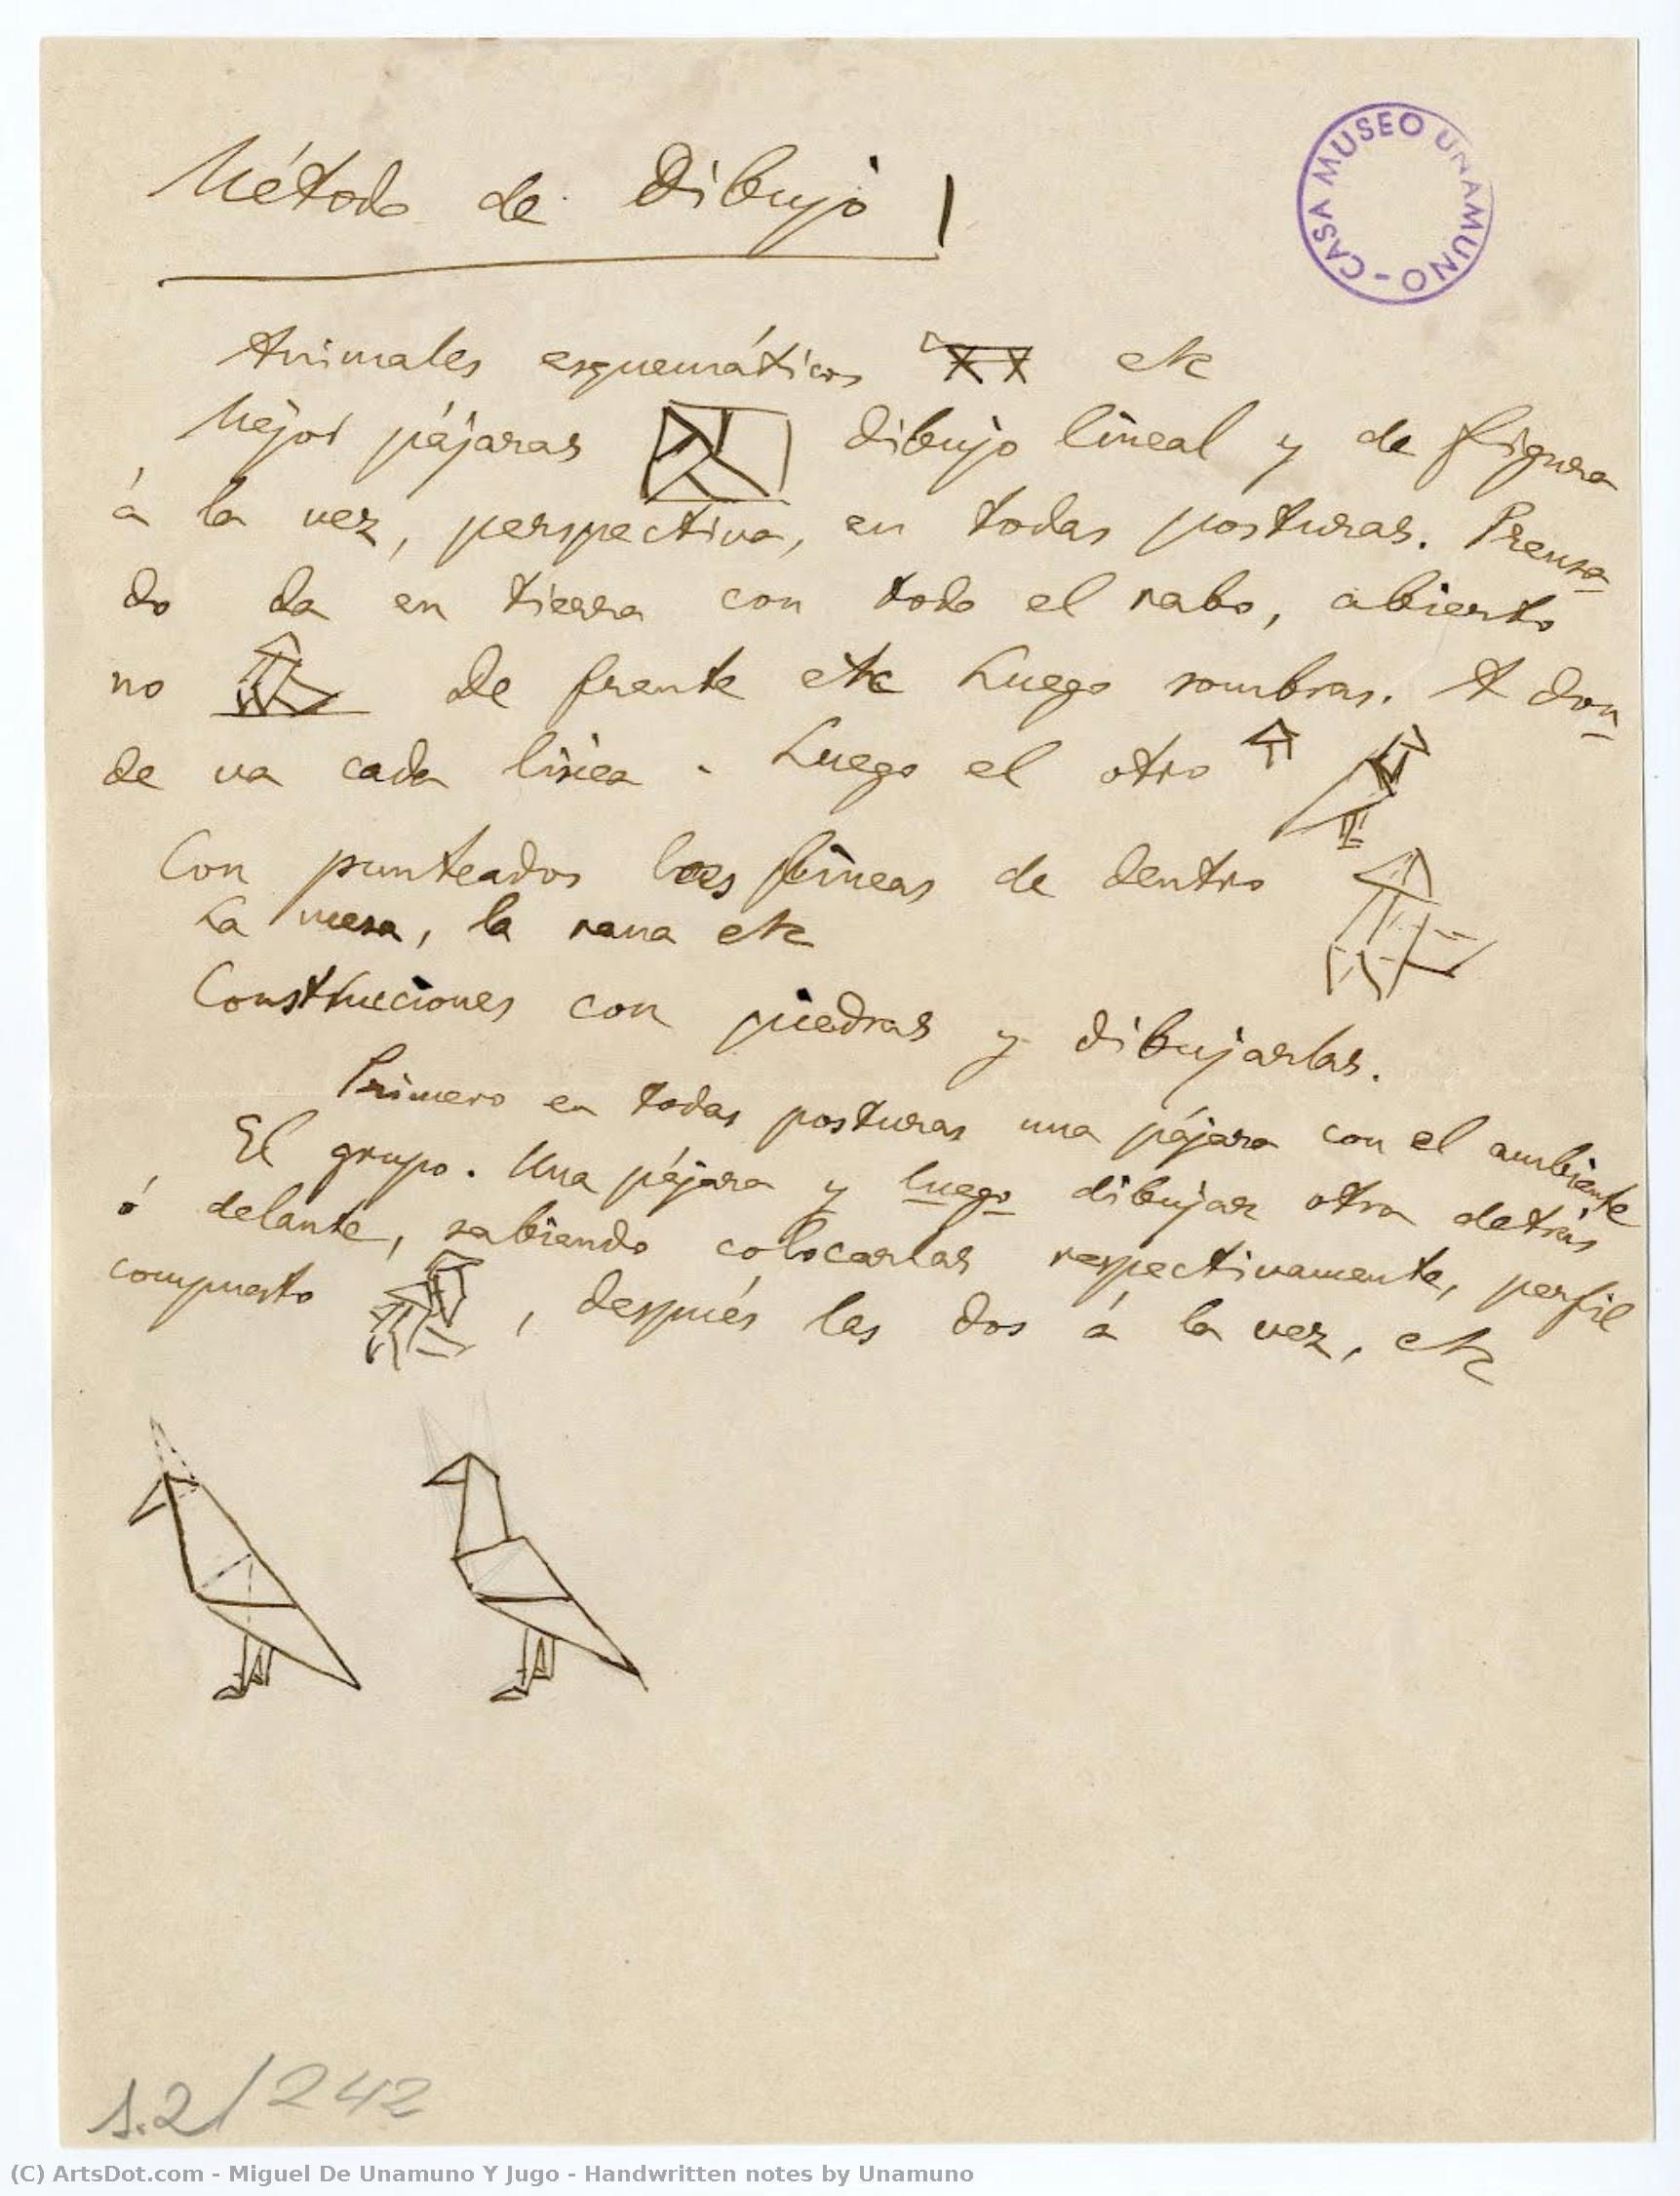 Método de Dibujo
CASA MUSEO UNAMUNO -
Animales esquemáticos etc
Mejor pájaras dibujo lineal y de figura
á la vez, perspectiva, en todas posturas. Prensa-
do da en tierra con todo el rabo, abierto
no De frente etc Luego sombras. A don-
de va cada línea. Luego el otro
Con punteados las líneas de dentro
La mesa, la rana etc
Construcciones con piedras y dibujarlas.
Primero en todas posturas una pájara con el ambiente
El grupo. Una pájara y luego dibujar otra detrás
ó delante, sabiendo colocarlas respectivamente, perfil
compuesto , después las dos á la vez, etc
1.2/242
(C) ArtsDot.com - Miguel De Unamuno Y Jugo - Handwritten notes by Unamuno